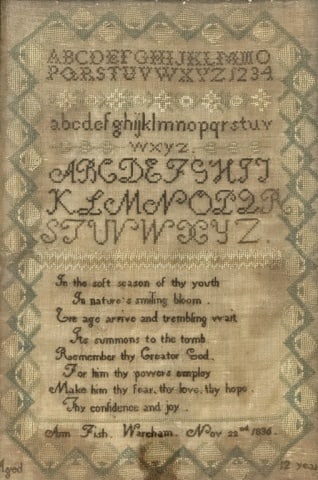 ABCDEFGHIJKLMNO
PQRSTUVWXYZ1234
abcdefghijklmnopqrstuv
wxyz.
ABCDEFGHIJ
KLMNOPQR
STUVWXYZ.
In the soft season of thy youth
In nature's smiling bloom.
Ere age arrive and trembling wait
Its summons to the tomb
Remember thy Creator God.
For him thy powers employ
Make him thy fear, thy love, thy hope.
Thy confidence and joy.
Ann Fish. Wareham. Nov 22nd 1836.
Aged 12 years